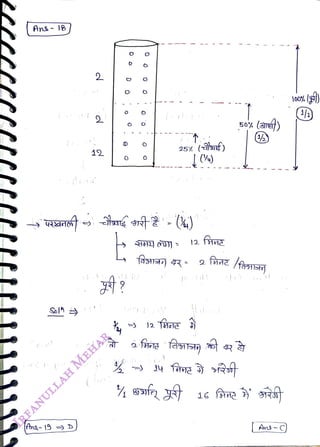 Ans-18
2
2
12
100% (पूरी)
1/1
50% (आधी)
1/2
25% (चौथाई)
(1/4)
→ परखनली ⇒ चौथाई भरी है = (1/4)
→ समय लगा = 12 मिनट
→ विभाजन दर = 2 मिनट / विभाजन
पूरी ?
Solⁿ ⇒
1/4 ⇒ 12 मिनट में
तो 2 मिनट विभाजन की दर से
1/2 ⇒ 14 मिनट में भरेगी
1/1 अर्थात् पूरी 16 मिनट में भरेगी
IRFANULLAH MEHAR
Ans-19 ⇒ D
Ans-C